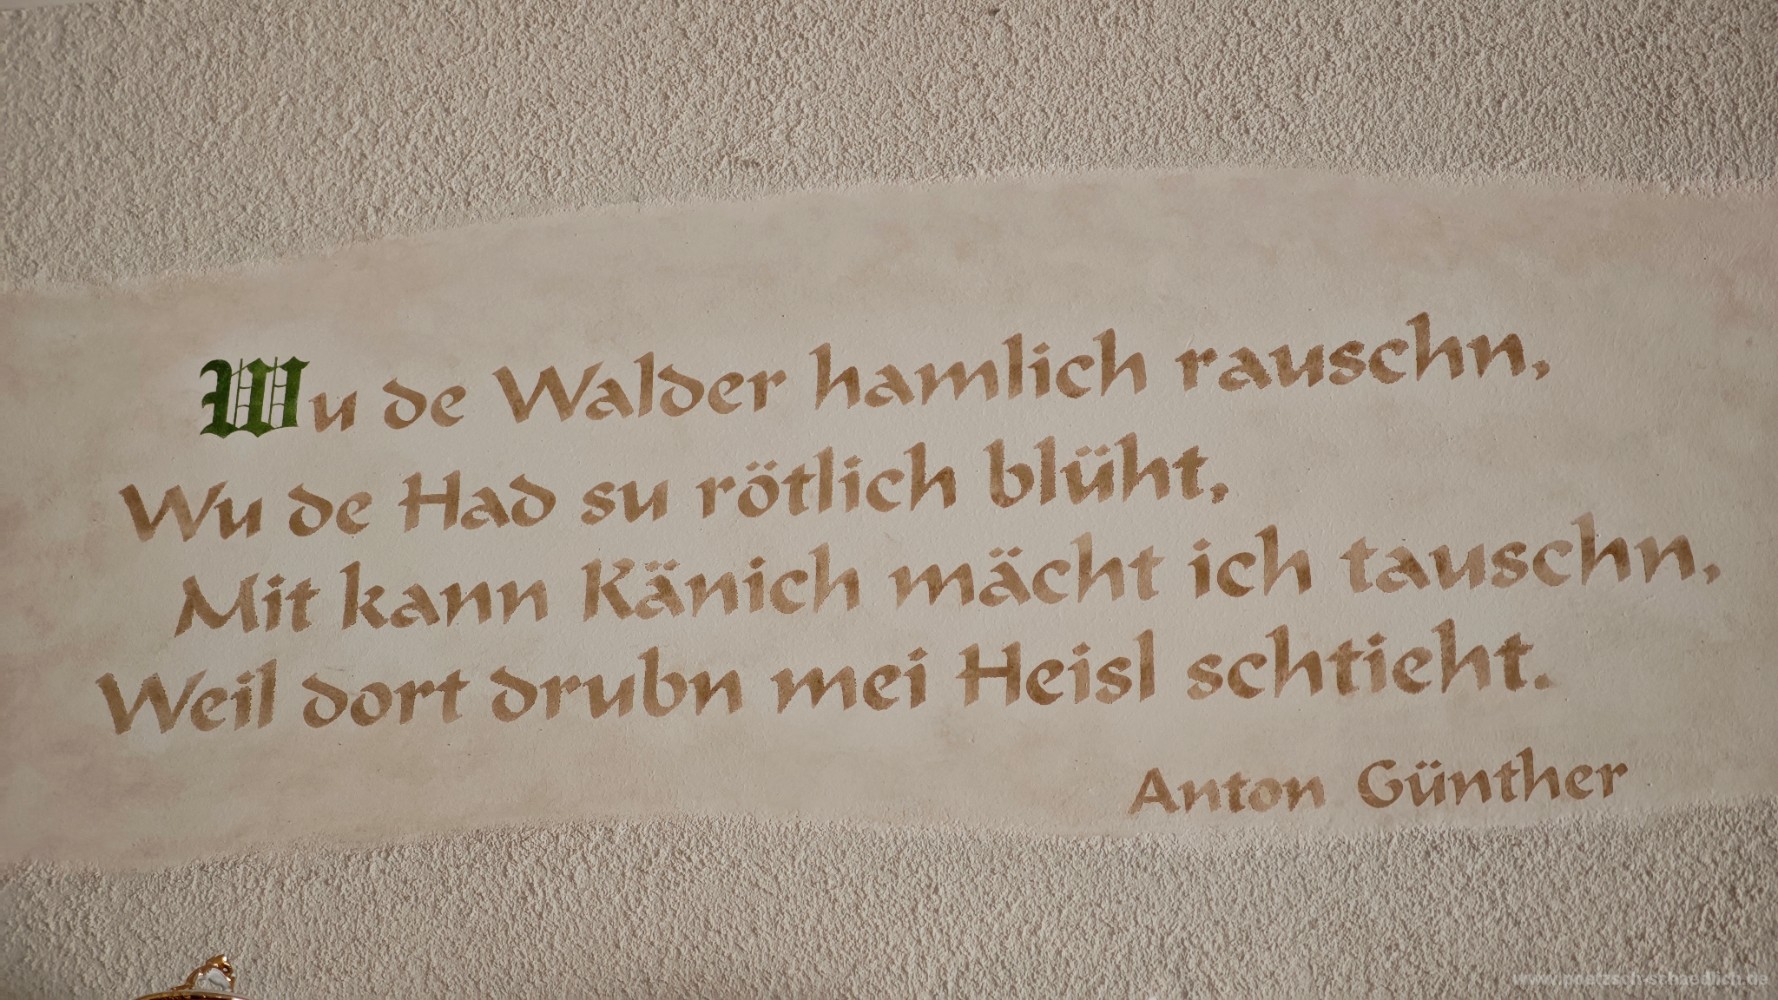 Wu de Walder hamlich rauschn,
Wu de Had su rötlich blüht,
Mit kann Känich mächt ich tauschn,
Weil dort drubn mei Heisl schtieht.
Anton Günther